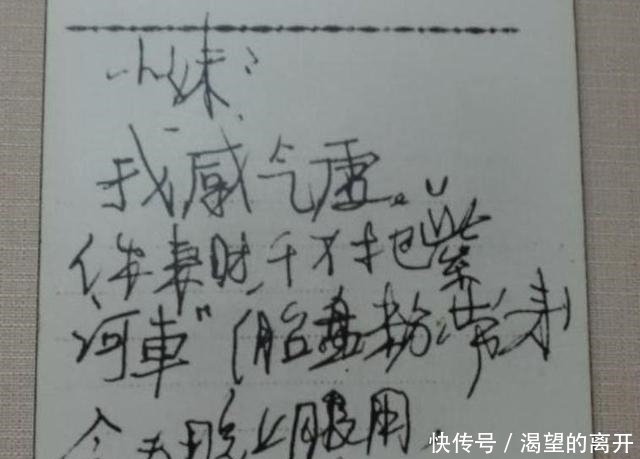 小妹:
我感气虚。
作妻时,千万把"紫
河車"(胎盘粉)带来
今天晚上服用.
快传号/渴望的离开